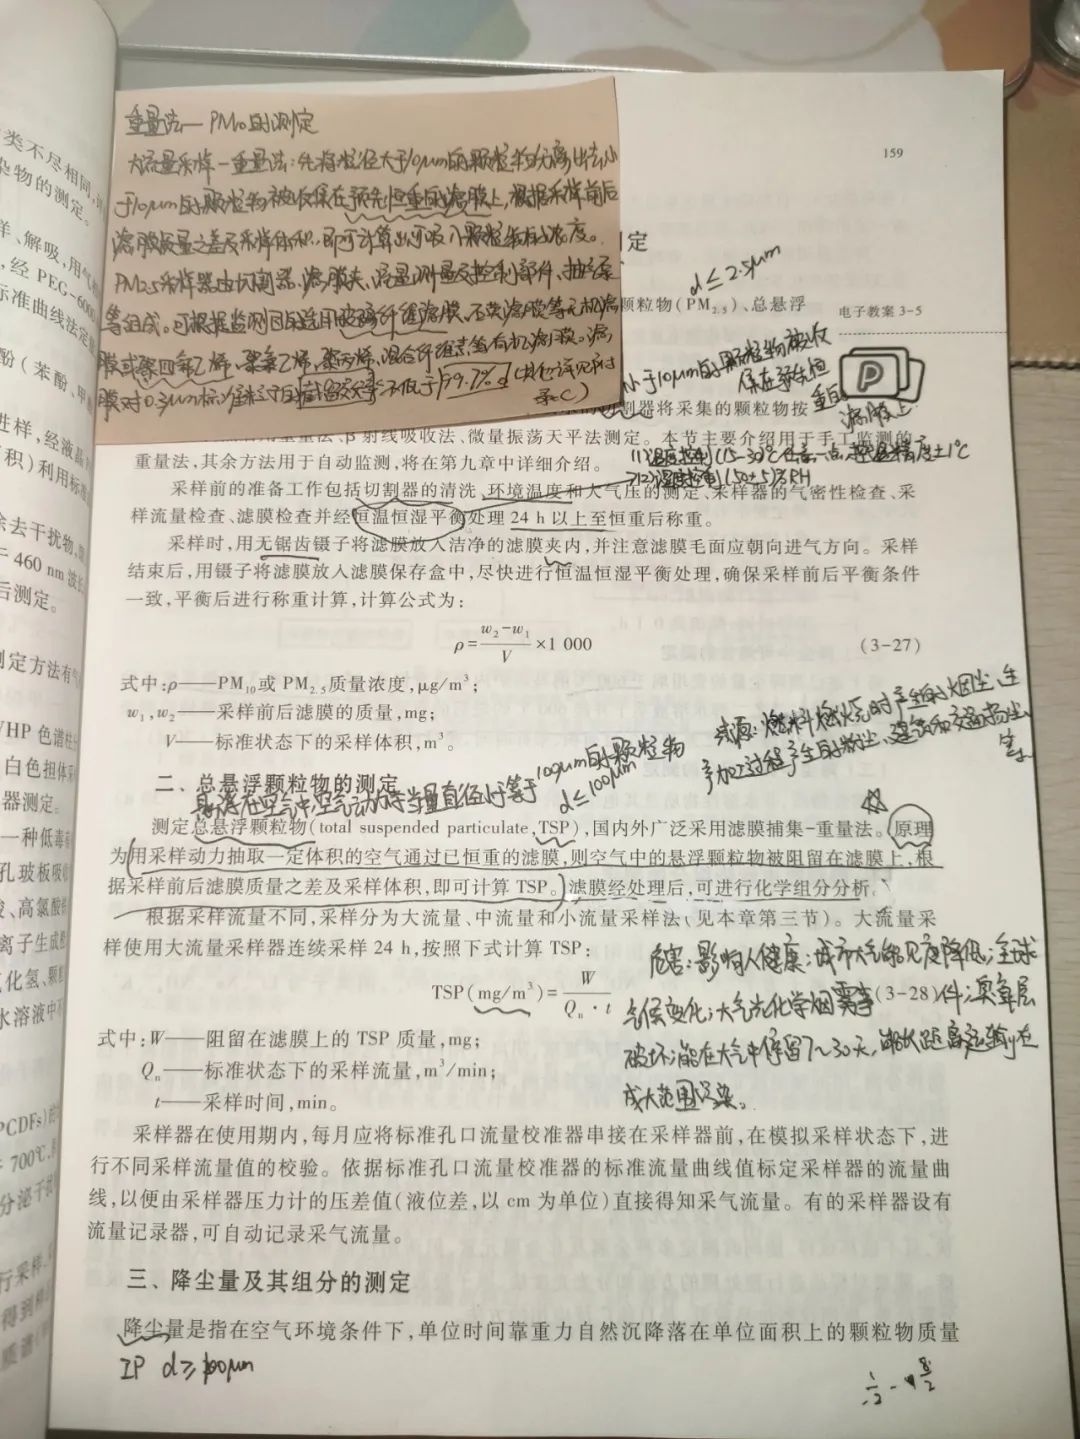 重量法—PM10的测定
大流量采样-重量法:先将粒径大于10μm的颗粒物分离出去,小
于10μm的颗粒物被收集在预先恒重的滤膜上,根据采样前后
滤膜质量之差及采样体积,即可计算出可吸入颗粒物的浓度。
PM2.5采样器由切割器、滤膜夹、流量测量及控制部件、抽气泵
等组成。可根据监测目的选用玻璃纤维滤膜、石英滤膜等无机滤
膜或聚四氟乙烯、聚氯乙烯、聚丙烯、混合纤维素等有机滤膜。滤
膜对0.3μm标准粒子的截留效率不低于99.7%。(其他详见附
录C)
159
类不尽相同,
染物的测定。
样、解吸,用气
,经 PEG-6000
标准曲线法定
酚(苯酚、甲
进样,经液晶
积)利用标准
余去干扰物,
于 460 nm 波长
后测定。
测定方法有气
VHP 色谱柱
白色担体采
器测定。
一种低毒
孔玻板吸收
、高氯酸
离子生成
化氢、颗
水溶液中不
PCDFs)
700℃,
分泌干扰
行采样
得到
定
d≤2.5μm
颗粒物(PM2.5)、总悬浮
电子教案 3-5
小于10μm的颗粒物被收
集在预先恒
重的
滤膜上
P
切割器将采集的颗粒物按
用重量法、β 射线吸收法、微量振荡天平法测定。本节主要介绍用于手工监测的
重量法,其余方法用于自动监测,将在第九章中详细介绍。
(1)温度控制(15-30)℃任意一点,控温精度±1℃
(2)湿度控制(50±5)%RH
采样前的准备工作包括切割器的清洗、环境温度和大气压的测定、采样器的气密性检查、采
样流量检查、滤膜检查并经恒温恒湿平衡处理 24 h 以上至恒重后称重。
采样时,用无锯齿镊子将滤膜放入洁净的滤膜夹内,并注意滤膜毛面应朝向进气方向。采样
结束后,用镊子将滤膜放入滤膜保存盒中,尽快进行恒温恒湿平衡处理,确保采样前后平衡条件
一致,平衡后进行称重计算,计算公式为:
ρ=(w2-w1)/V×1 000 (3-27)
式中:ρ——PM10或 PM2.5质量浓度,μg/m³;
w1,w2——采样前后滤膜的质量,mg;
V——标准状态下的采样体积,m³。
来源:燃料燃烧时产生的烟尘、生
产加工过程产生的粉尘、建筑和交通扬尘
等
二、总悬浮颗粒物的测定
悬浮在空气中,空气动力学当量直径小于等于100μm的颗粒物
d≤100μm
测定总悬浮颗粒物(total suspended particulate,TSP),国内外广泛采用滤膜捕集-重量法。原理
为用采样动力抽取一定体积的空气通过已恒重的滤膜,则空气中的悬浮颗粒物被阻留在滤膜上,根
据采样前后滤膜质量之差及采样体积,即可计算 TSP。滤膜经处理后,可进行化学组分分析。
根据采样流量不同,采样分为大流量、中流量和小流量采样法(见本章第三节)。大流量采
样使用大流量采样器连续采样 24 h,按照下式计算 TSP:
TSP(mg/m³)=W/(Qn·t) (3-28)
危害:影响人健康;城市大气能见度降低;全球
气候变化;大气光化学烟雾事件;臭氧层
破坏;能在大气中停留7~30天,能长距离运输,造
成大范围污染。
式中:W——阻留在滤膜上的 TSP 质量,mg;
Qn——标准状态下的采样流量,m³/min;
t——采样时间,min。
采样器在使用期内,每月应将标准孔口流量校准器串接在采样器前,在模拟采样状态下,进
行不同采样流量值的校验。依据标准孔口流量校准器的标准流量曲线值标定采样器的流量曲
线,以便由采样器压力计的压差值(液位差,以 cm 为单位)直接得知采气流量。有的采样器设有
流量记录器,可自动记录采气流量。
三、降尘量及其组分的测定
降尘量是指在空气环境条件下,单位时间靠重力自然沉降落在单位面积上的颗粒物质量
IP d≥100μm